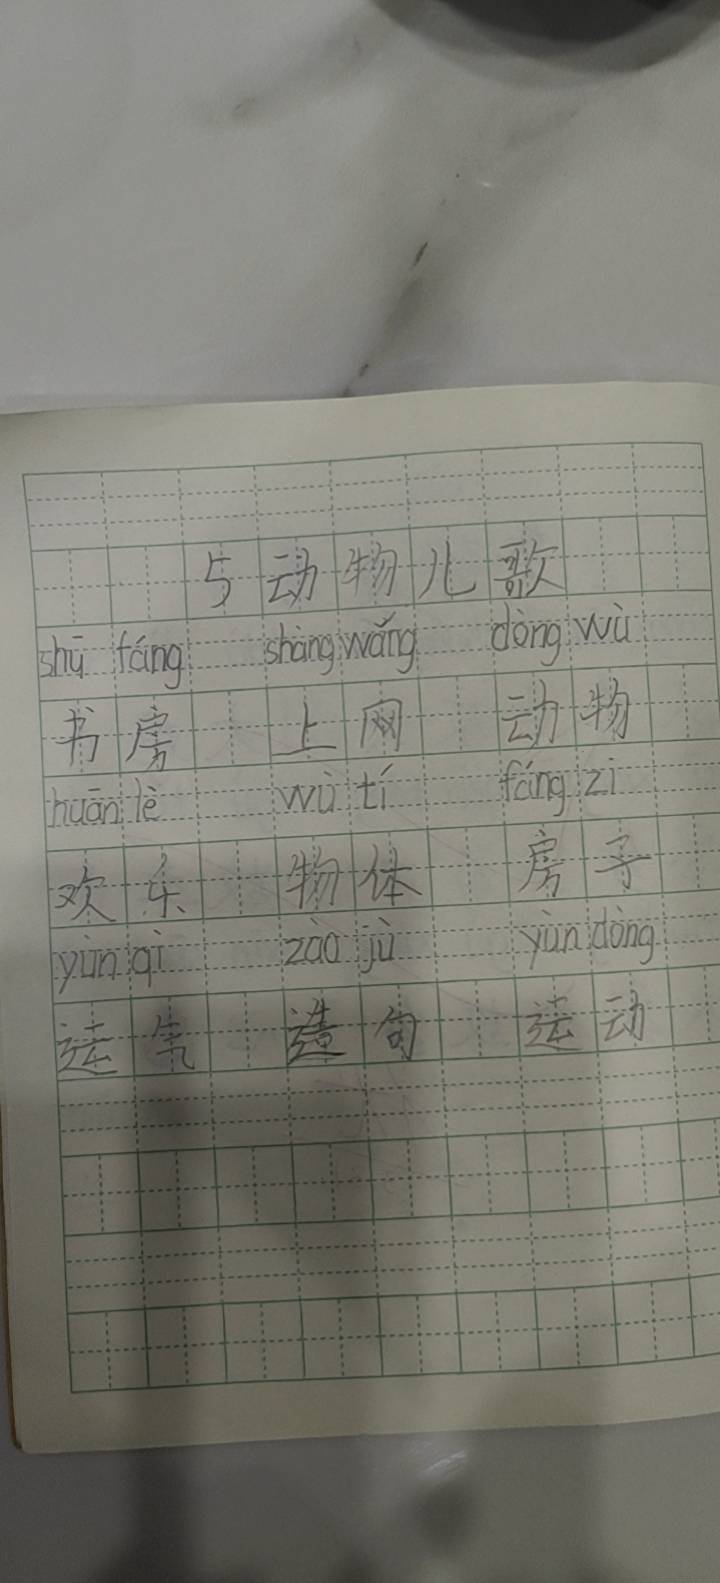 5动物儿歌
shū fáng shàng wǎng dòng wù
书房 上网 动物
huān lè wù tí fáng zi
欢乐 物体 房子
yùn qì zào jù yùn dòng
运气 造句 运动